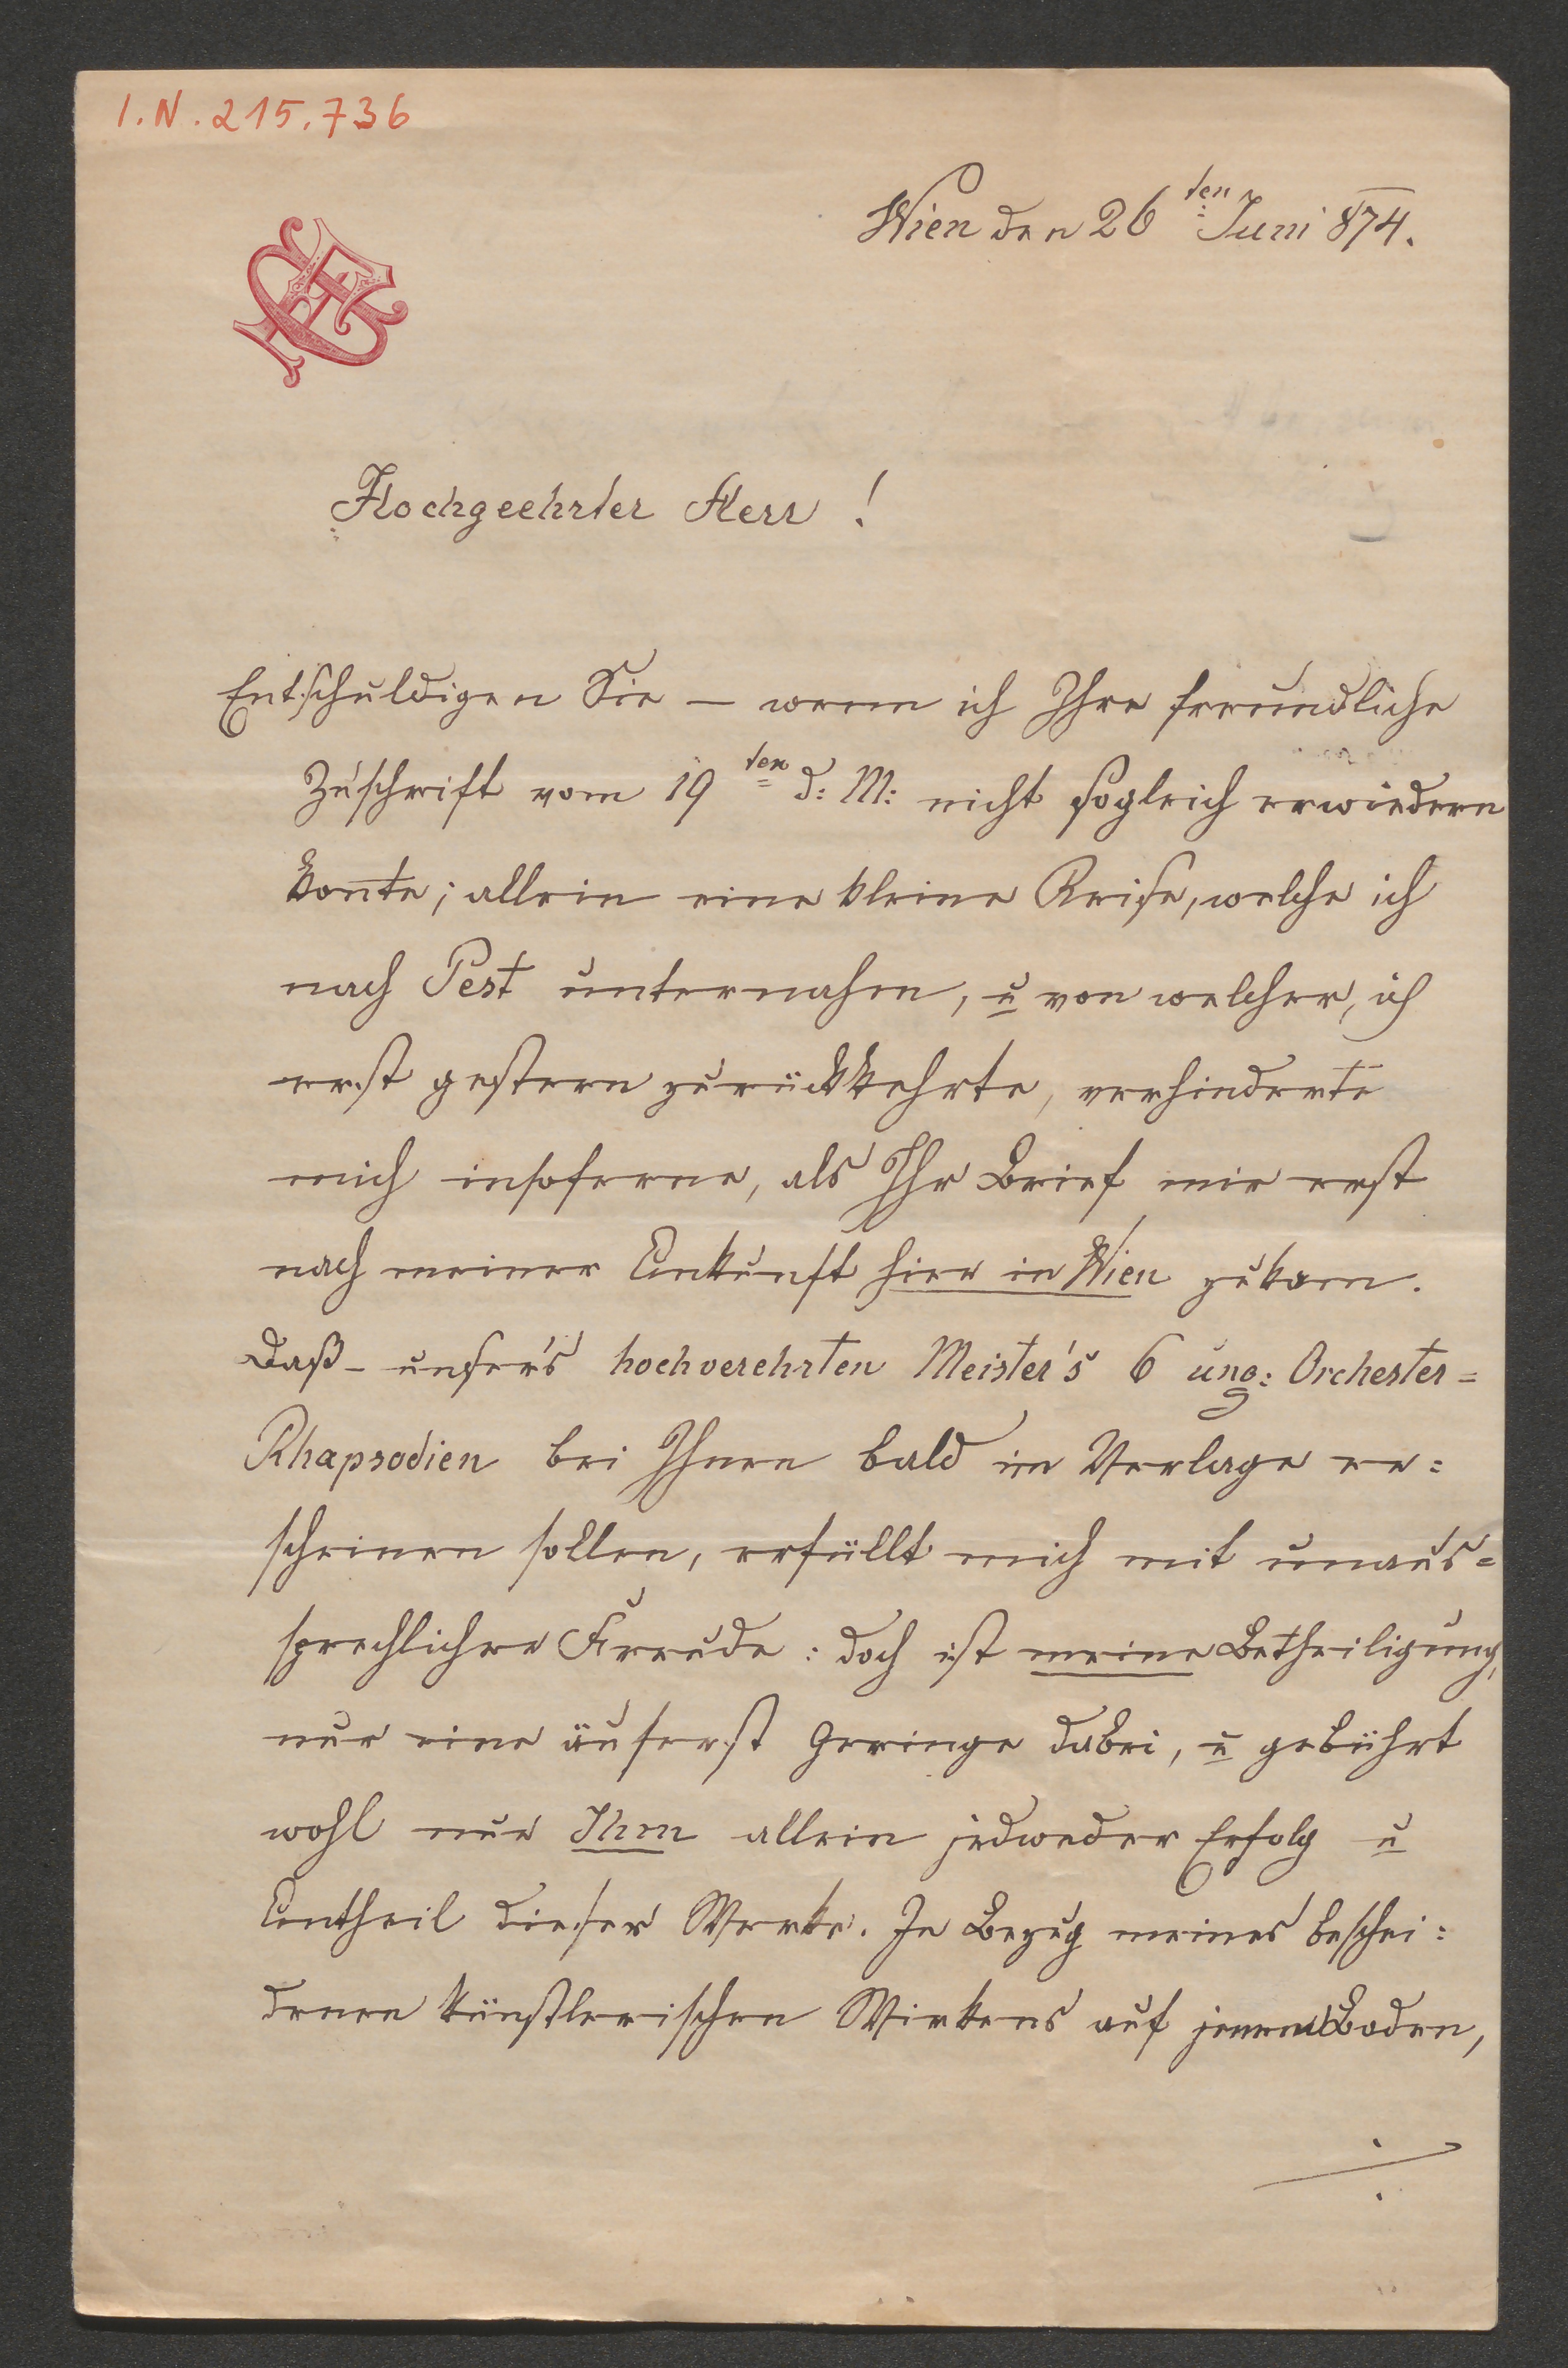 I.N. 215.736
Wien den 26ten Juni 874.
Hochgeehrter Herr !
Entschuldigen Sie – wenn ich Ihre freundliche
Zuschrift vom 19ten d: M: nicht sogleich erwiedern
kon̄te; allein eine kleine Reise, welche ich
nach Pest unternahm, u von welcher, ich
erst gestern zurückkehrte, verhinderte
mich insoferne, als Ihr Brief mir erst
nach meiner Ankunft hier in Wien zukam.
Daß – unser's hochverehrten Meister's 6 ung: Orchester=
Rhapsodien bei Ihnen bald im Verlage er=
scheinen sollen, erfüllt mich mit unaus=
sprechlicher Freude : doch ist meine Betheiligung,
nur eine äuserst geringe dabei, u gebührt
wohl nur Ihm allein jedweder Erfolg u
Antheil dieser Werke. In Bezug meines beschei=
denen künstlerischen Wirkens auf jenem Boden,